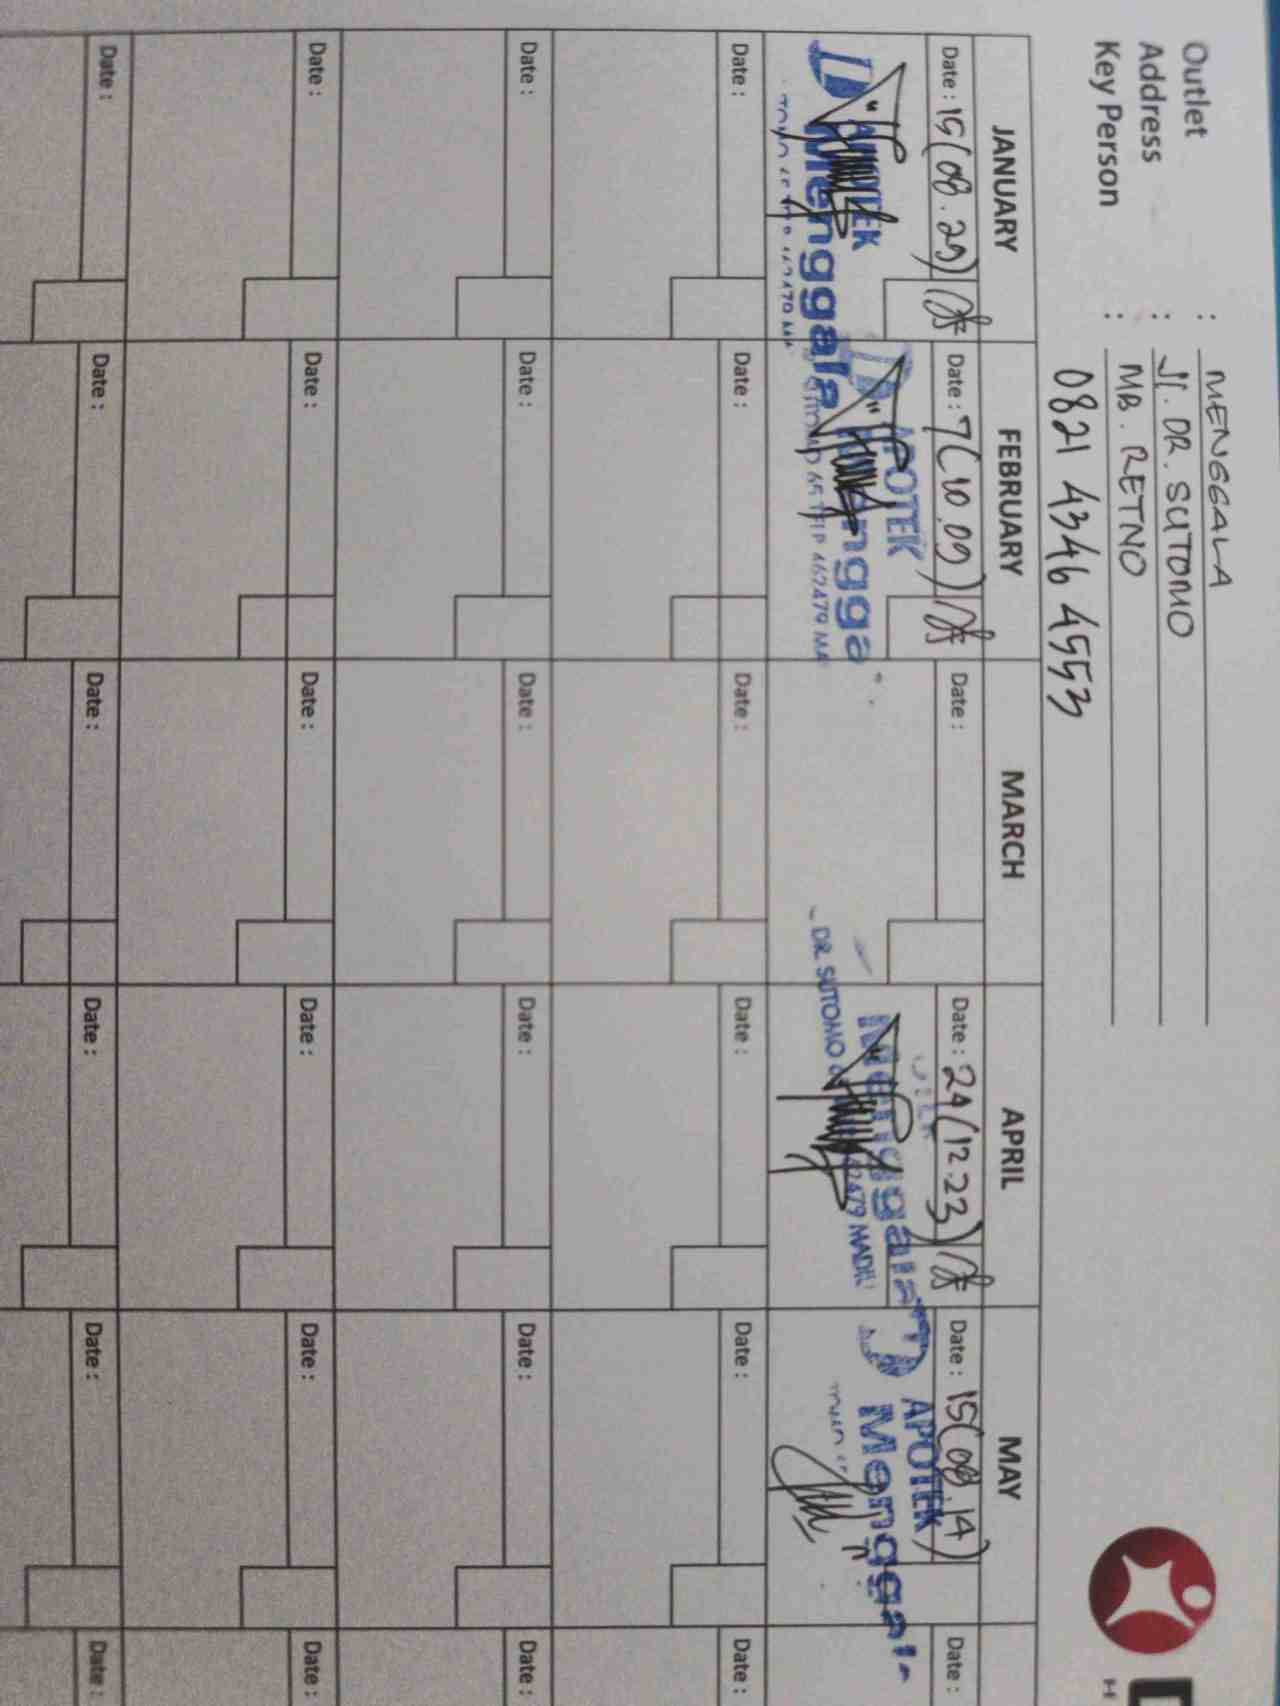 Outlet : MENGGALA
Address : Jl. DR. SUTOMO
Key Person : MB. RETNO
0821 4346 4553
JANUARY FEBRUARY MARCH APRIL MAY
Date : 15(08.29) Date : 7(10.09) Date : Date : 24(12.23) Date : 15(08.14) Date :
APOTEK APOTEK APOTEK
Menggala Mengga Menggala Menggal
65 TELP 462479 MA DR. SUTOMO 62479 MADIU
Date : Date : Date : Date : Date : Date :
Date : Date : Date : Date : Date : Date :
Date : Date : Date : Date : Date : Date :
Date : Date : Date : Date : Date : Date :